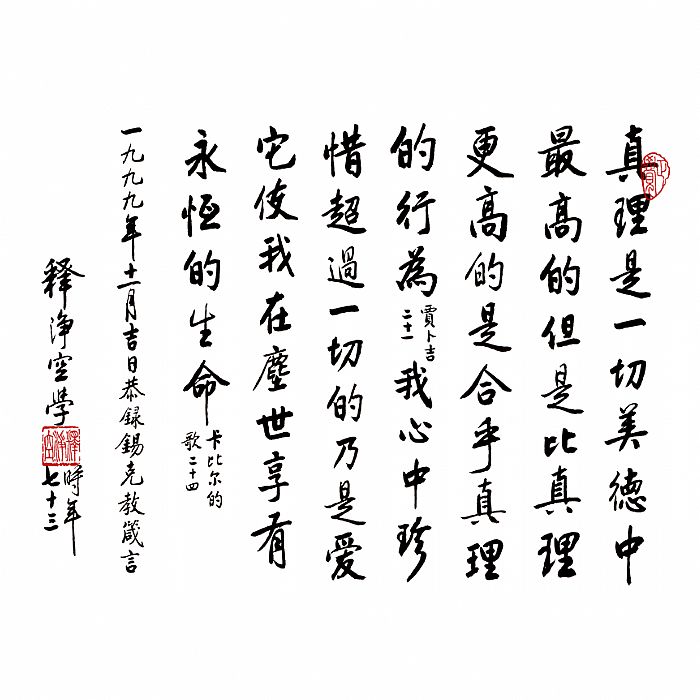 真理是一切美德中
最高的但是比真理
更高的是合乎真理
的行為 賈卜吉二十一 我心中珍
惜超過一切的乃是愛
它使我在塵世享有
永恆的生命 卡比尔的歌二十四
一九九九年十一月吉日恭録錫克教箴言
释淨空學 時年七十三
釋淨空